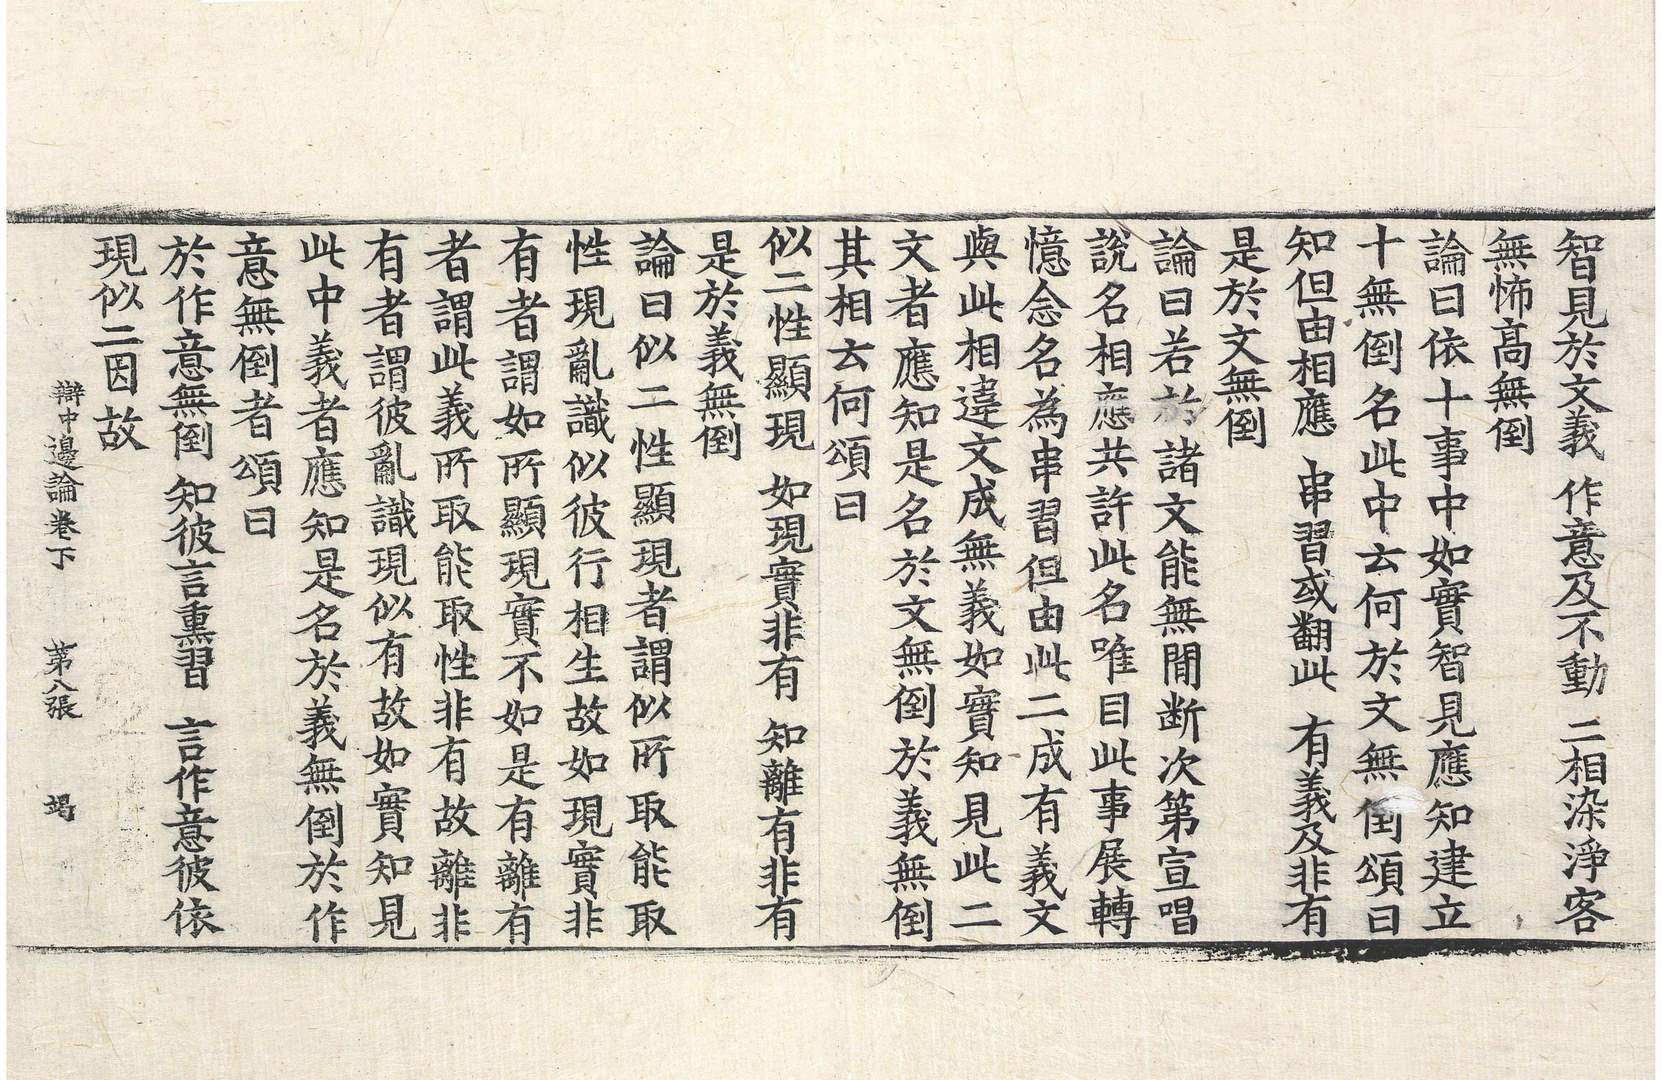 智見於文義 作意及不動 二相染淨客
無怖高無倒
論曰依十事中如實智見應知建立
十無倒名此中云何於文無倒頌曰
知但由相應 串習或翻此 有義及非有
是於文無倒
論曰若於諸文能無間断次第宣唱
說名相應共許此名唯目此事展轉
憶念名為串習但由此二成有義文
與此相違文成無義如實知見此二
文者應知是名於文無倒於義無倒
其相云何頌曰
似二性顯現 如現實非有 知離有非有
是於義無倒
論曰似二性顯現者謂似所取能取
性現亂識似彼行相生故如現實非
有者謂如所顯現實不如是有離有
者謂此義所取能取性非有故離非
有者謂彼亂識現似有故如實知見
此中義者應知是名於義無倒於作
意無倒者頌曰
於作意無倒 知彼言熏習 言作意彼依
現似二因故
辯中邊論卷下 第八張 竭